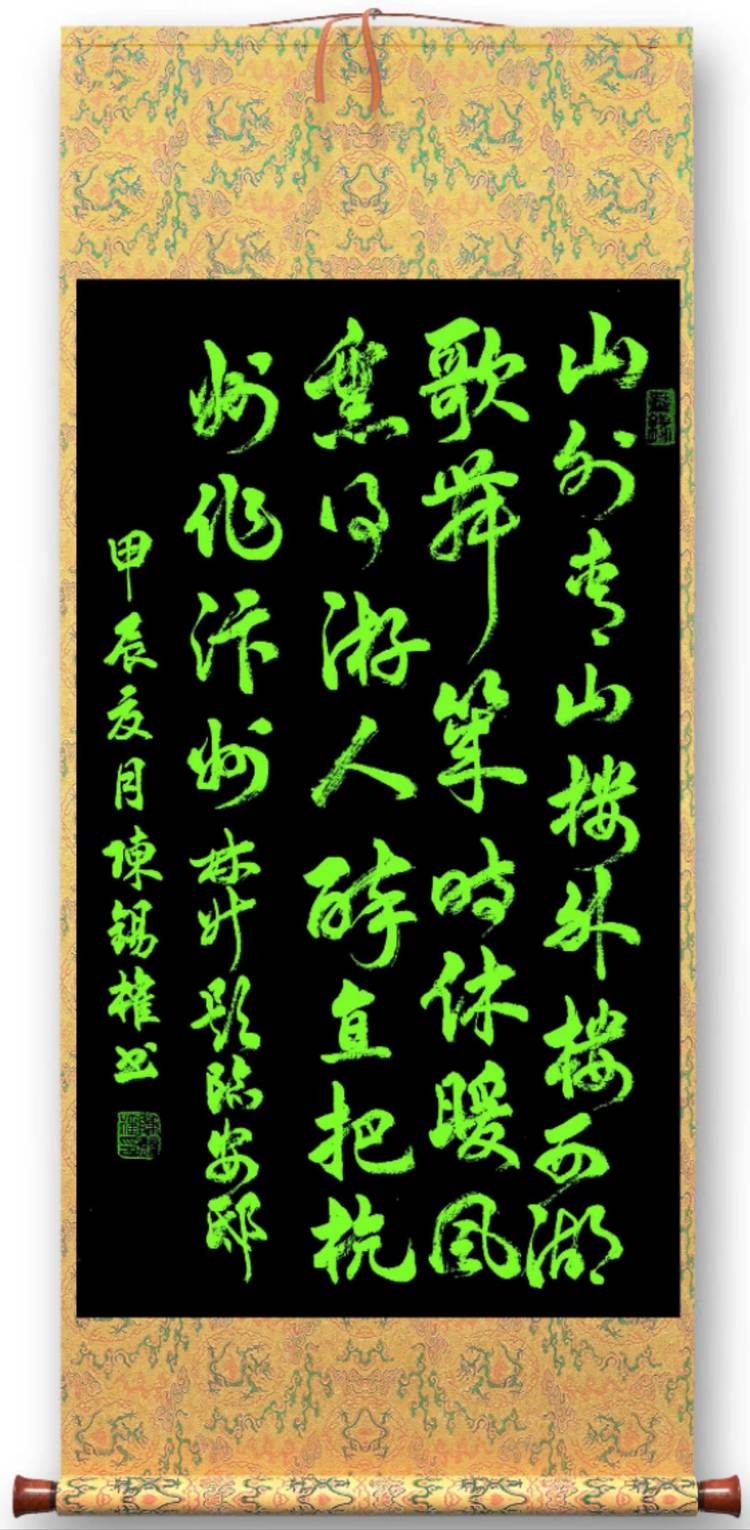 山外青山樓外樓西湖
歌舞幾時休暖風
熏得游人醉直把杭
州作汴州林升題臨安邸
甲辰夏月陳錫權书